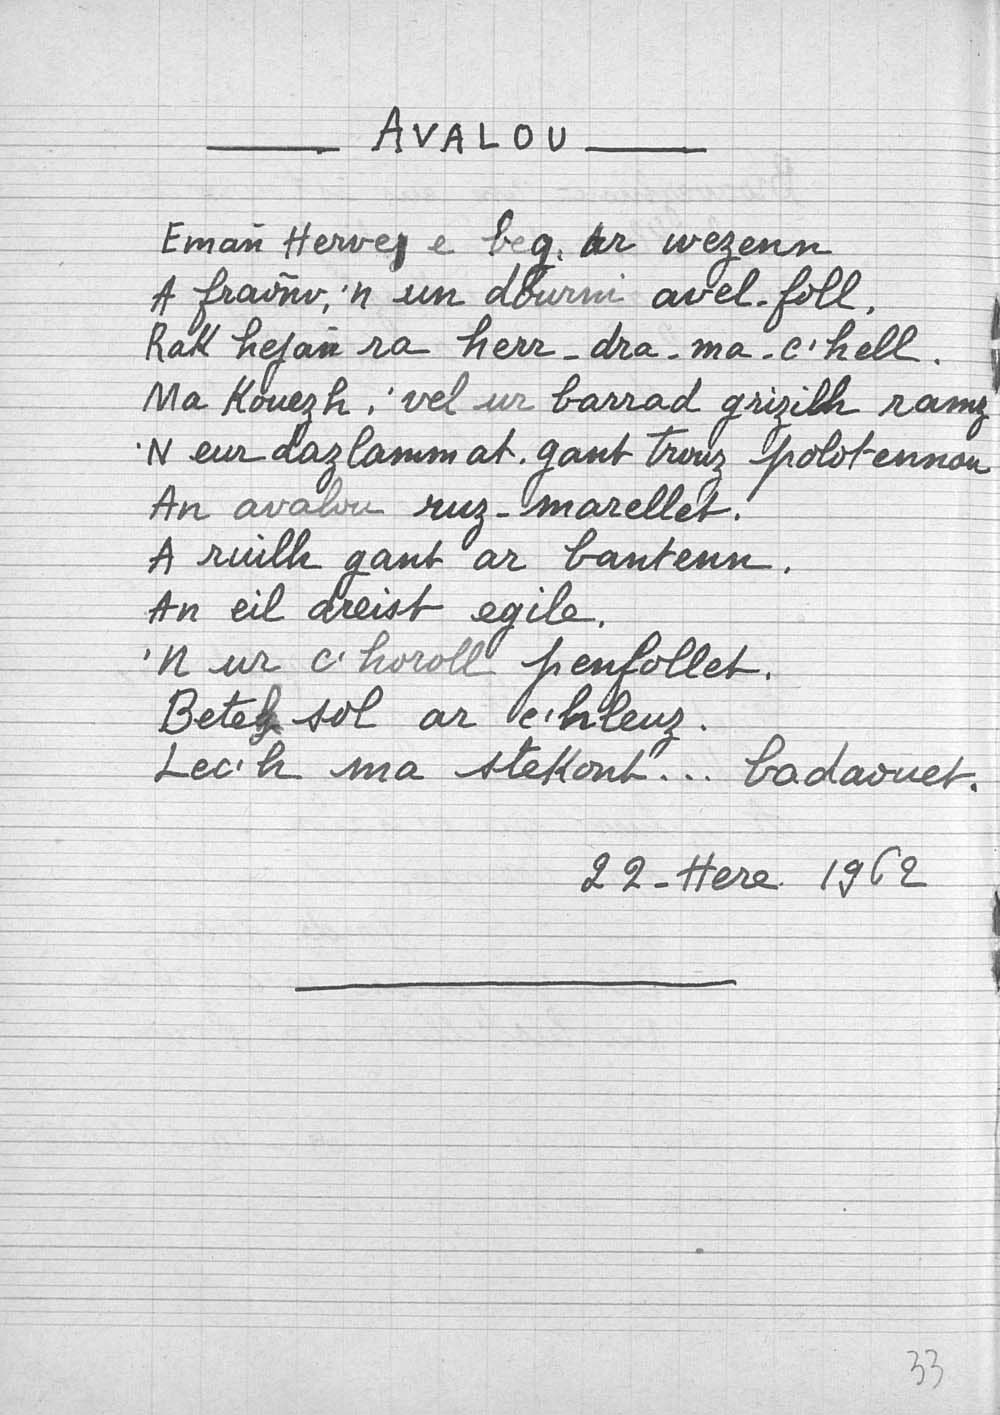 AVALOU
Emañ Hervey e beg, ar wezenn
A fraoñv, 'n un dourni avel-foll,
Rak hejañ ra herr-dra-ma-c'hell.
Ma Kouezh, 'vel ur barrad grizilh ramz
'N eur dazlammat. gant trouz polotennou
An avalou ruz-marellet.
A ruilh gant ar bantenn.
An eil dreist egile.
'N ur c'horoll penfollet.
Betek sol ar c'hleuz.
Lec'h ma stekont... badaouet.
22-Here 1962
33